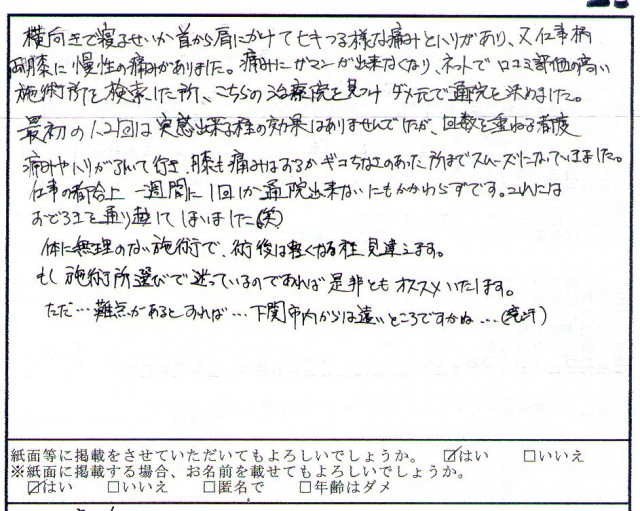 横向きで寝るせいか首から肩にかけてヒキつる様な痛みとハリがあり、又仕事柄
両膝に慢性の痛みがありました。痛みにガマンが出来なくなり、ネットで口コミ評価の高い
施術所を検索した所、こちらの治療院を見つけダメ元で通院を決めました。
最初の1、2回は実感出来る程の効果はありませんでしたが、回数を重ねる都度
痛みやハリが引いて行き、膝も痛みはおろかギコちなさのあった所までスムーズになっていきました。
仕事の都合上一週間に1回しか通院出来ないにもかかわらずです。これには
おどろきを通り越してしまいました(笑)
体に無理のない施術で、術後は軽くなる程見違えます。
もし施術所選びで迷っているのであれば是非ともオススメいたします。
ただ…難点があるとすれば…下関市内からは遠いところですかね…(競汗)
紙面等に掲載をさせていただいてもよろしいでしょうか。 ☑はい □いいえ
※紙面に掲載する場合、お名前を載せてもよろしいでしょうか。
☑はい □いいえ □匿名で □年齢はダメ